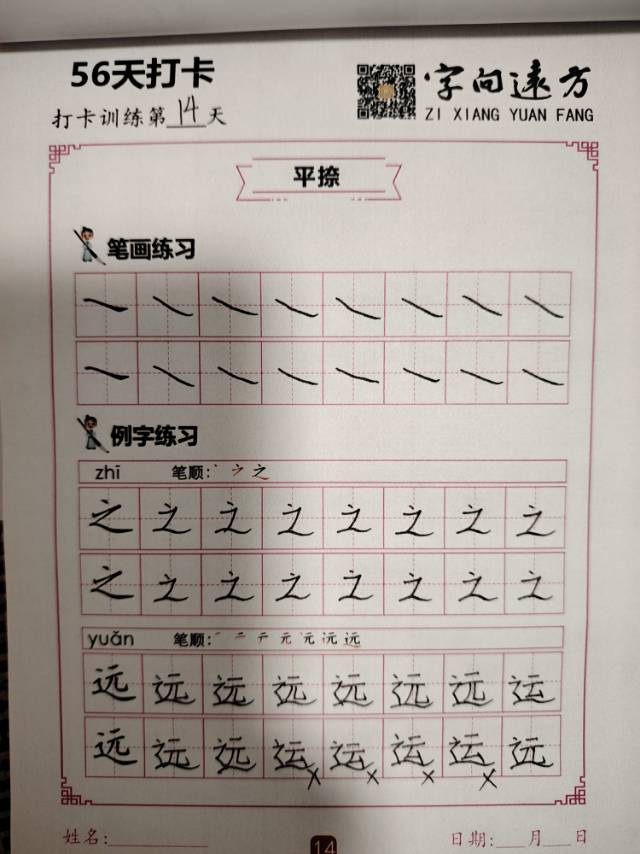 56天打卡
打卡训练第14天
字向远方
ZI XIANG YUAN FANG
平捺
笔画练习
例字练习
zhī 笔顺:丶 ㇇ 之
之 之 之 之 之 之 之 之
之 之 之 之 之 之 之 之
yuǎn 笔顺:一 二 テ 元 远 远 远
远 远 远 远 远 远 远 运
远 远 远 运 运 运 运 远
姓名:
14
日期: 月 日